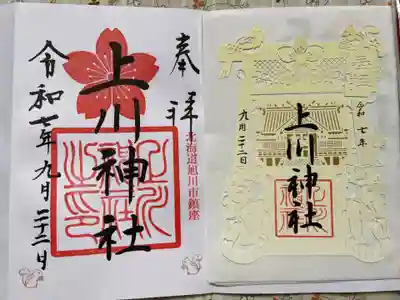 奉拝
上川神社
北海道旭川市鎮座
令和七年九月二十二日
令和七年
上川神社
九月二十二日